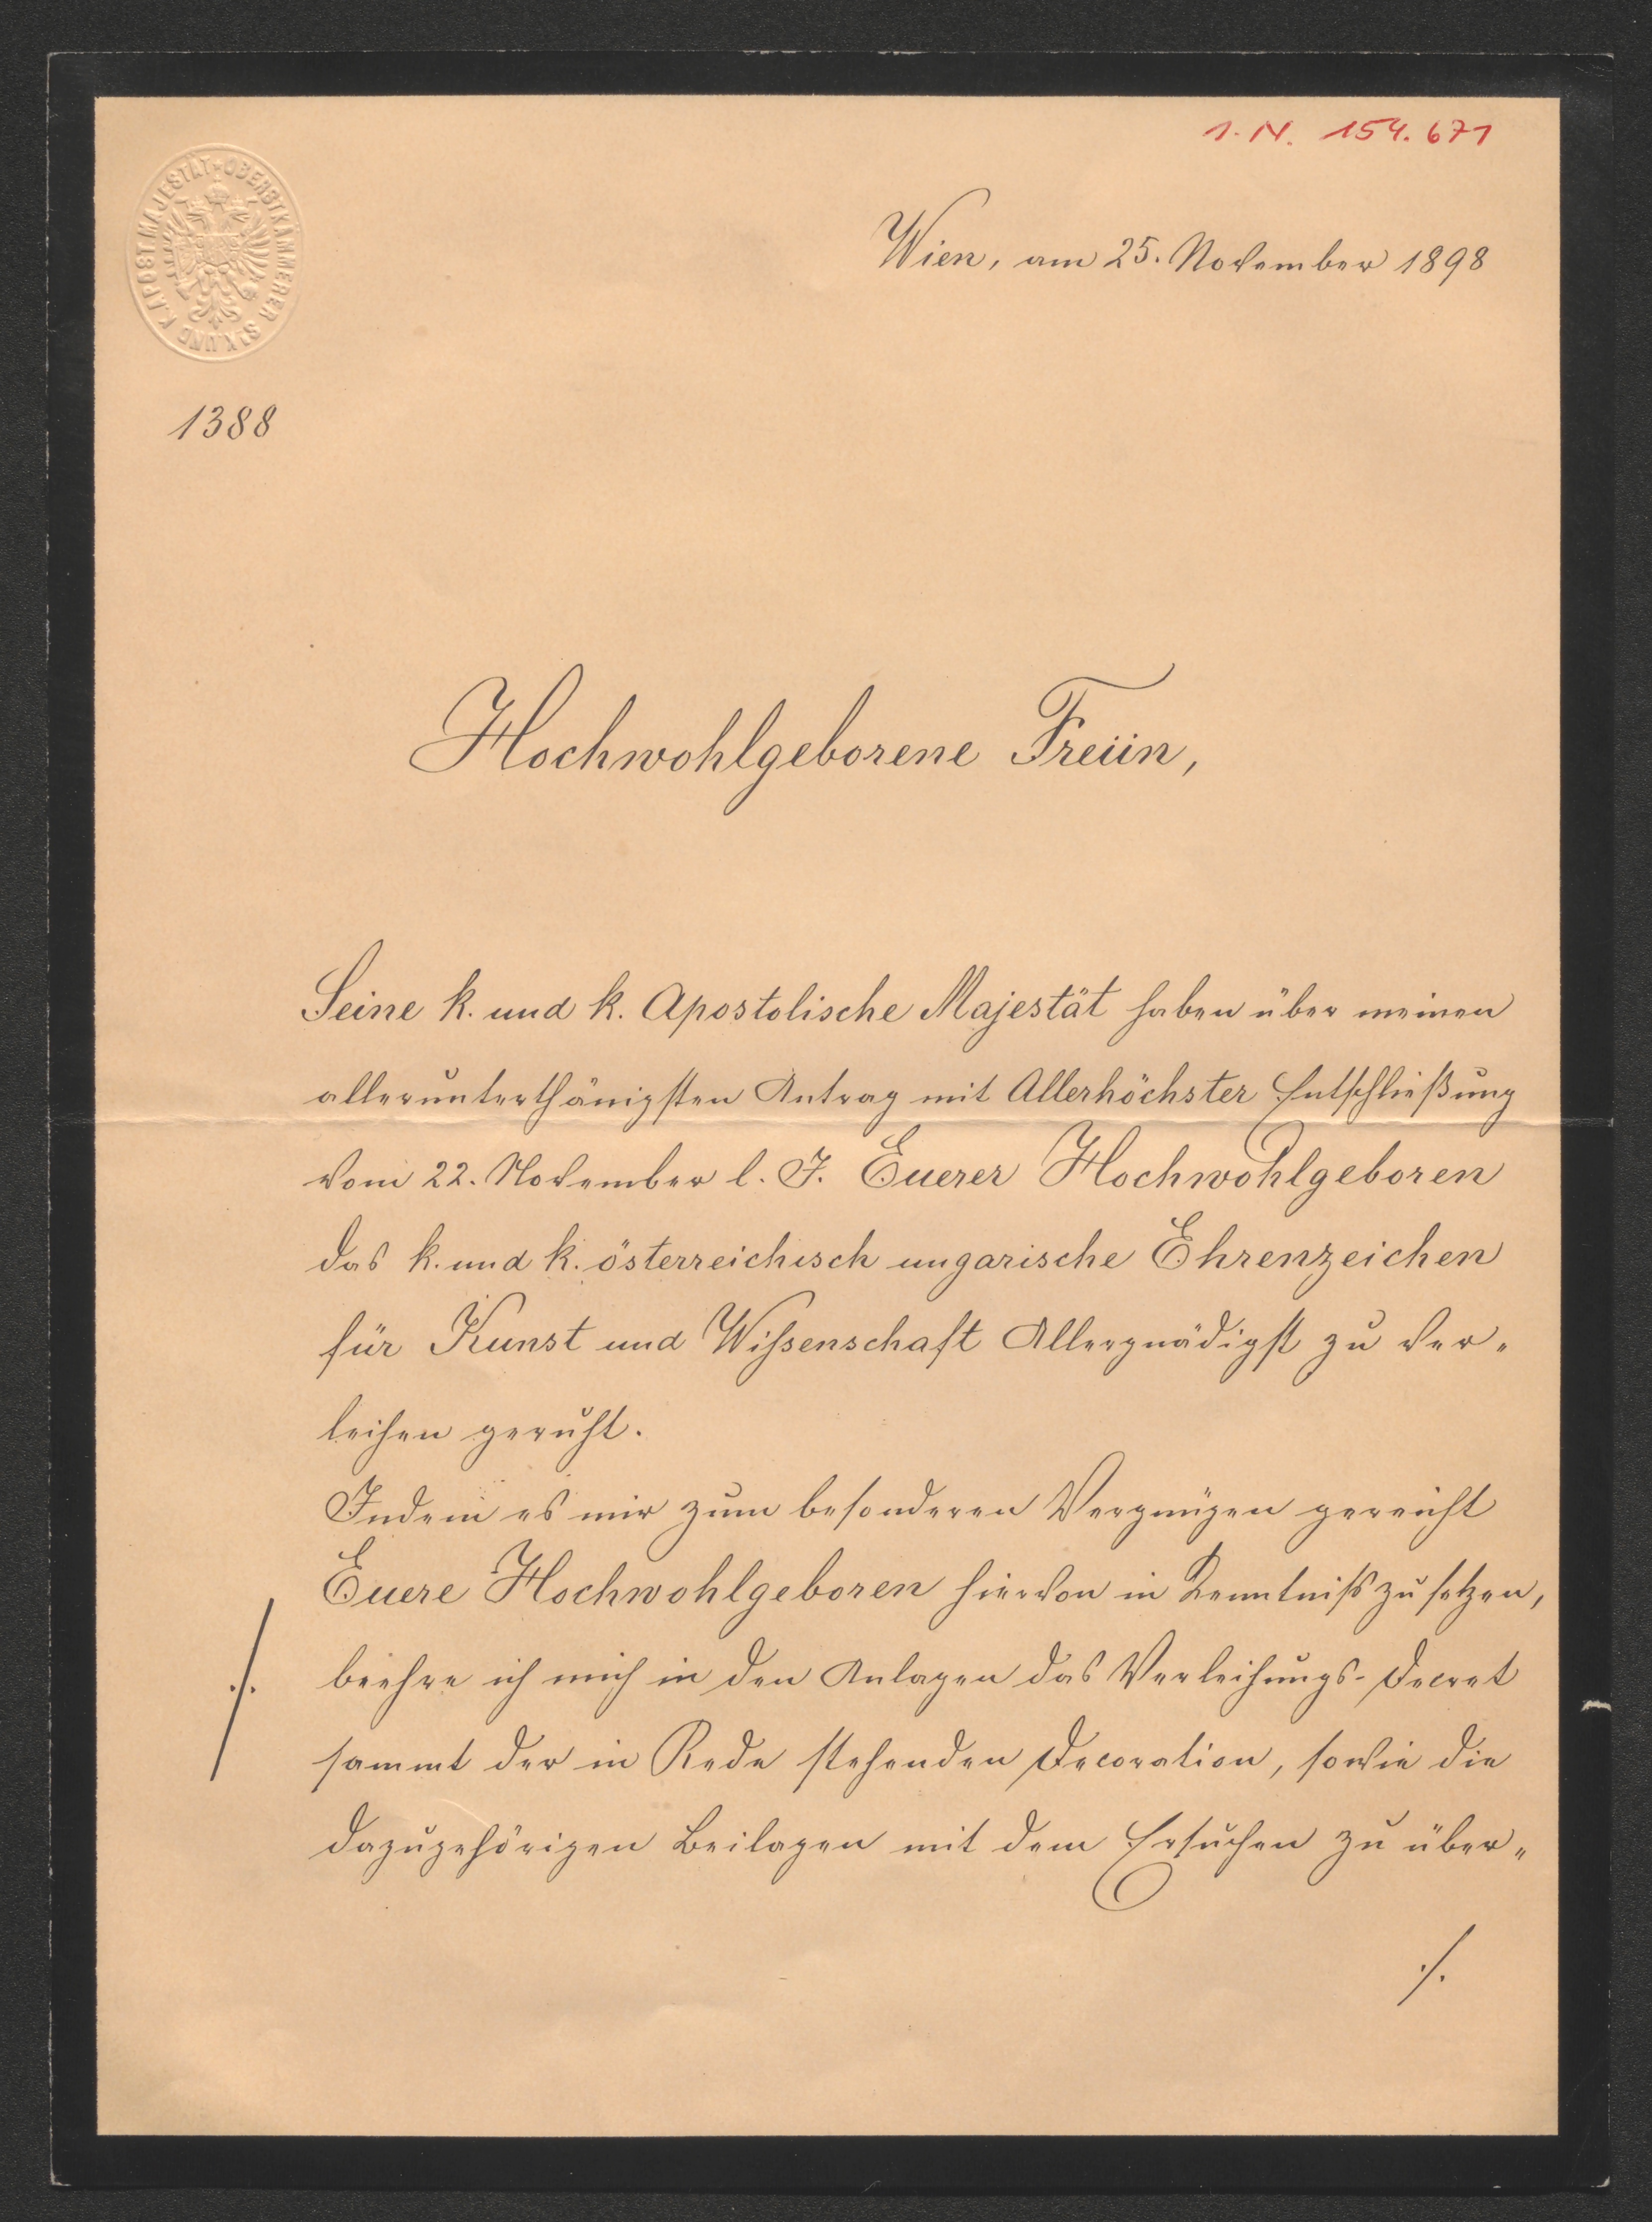 I. N. 154.671
OBERSTKÄMMERER S. K. UND K. APOST. MAJESTÄT
Wien, am 25. November 1898
1388
Hochwohlgeborene Freiin,
Seine k. und k. Apostolische Majestät haben über meinen
allerunterthänigsten Antrag mit Allerhöchster Entschließung
vom 22. November l. J. Euerer Hochwohlgeboren
das k. und k. österreichisch ungarische Ehrenzeichen
für Kunst und Wissenschaft Allergnädigst zu ver-
leihen geruht.
Indem es mir zum besonderen Vergnügen gereicht
Euere Hochwohlgeboren hievon in Kenntniß zu setzen,
./.
beehre ich mich in den Anlagen das Verleihungs-Decret
sammt der in Rede stehenden Decoration, sowie die
dazugehörigen Beilagen mit dem Ersuchen zu über-
./.